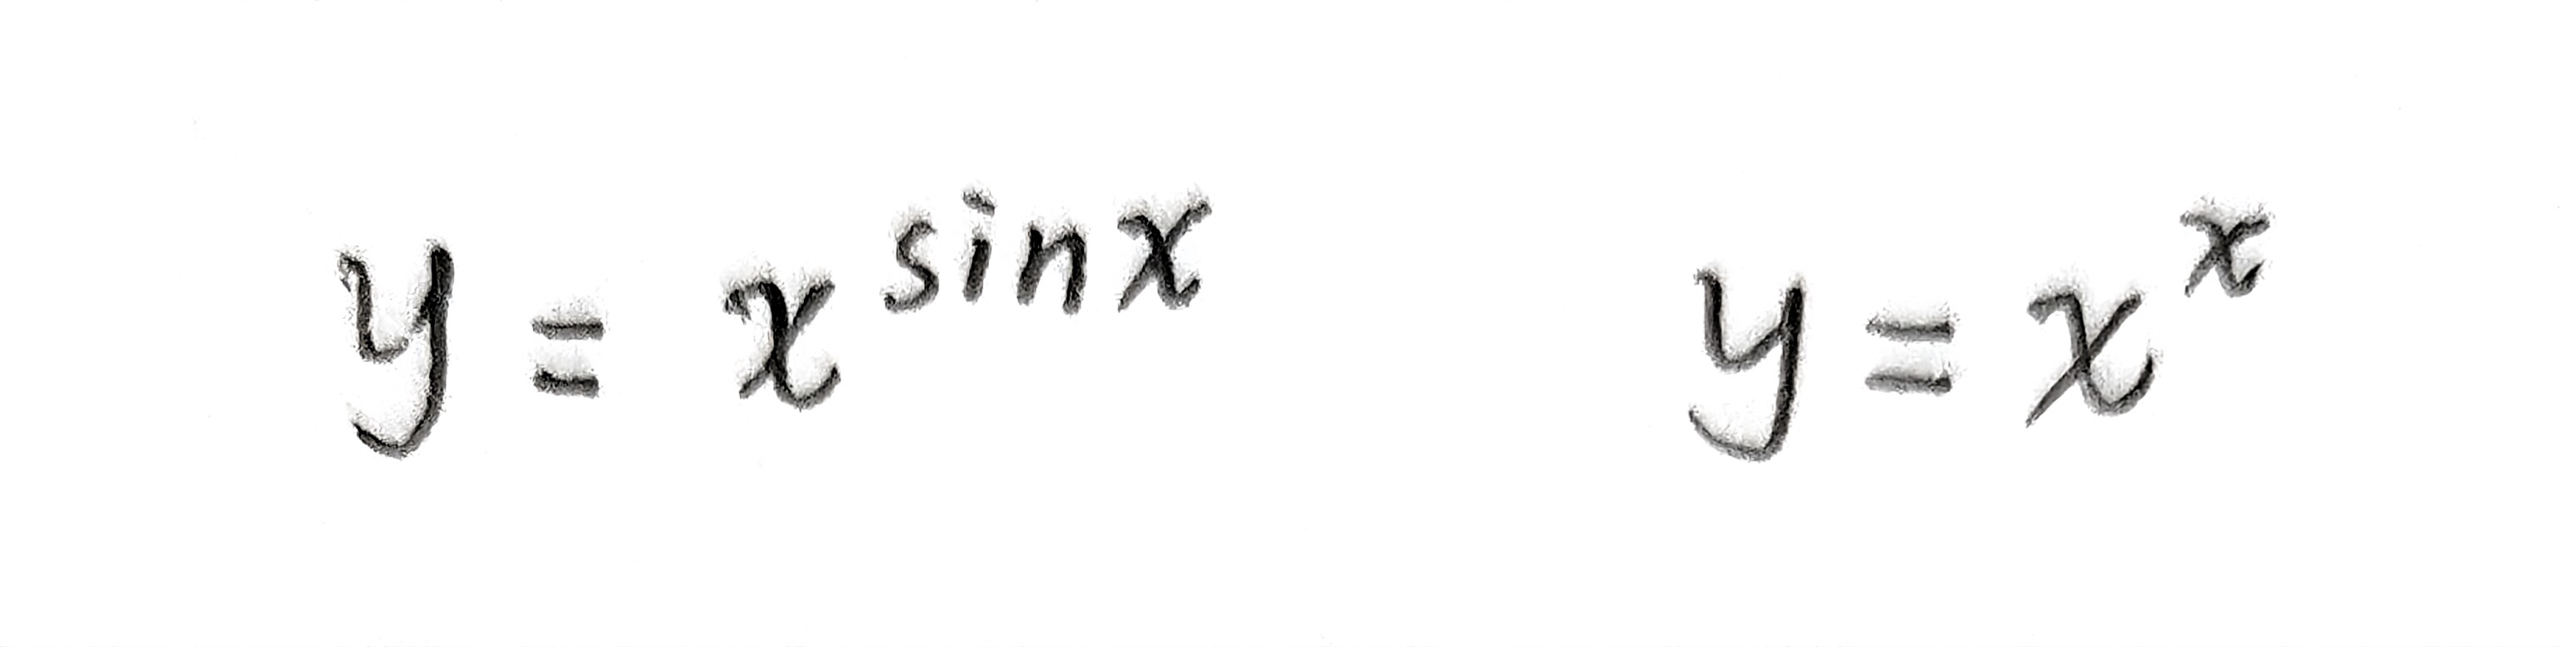 y = x^{sin x} y = x^x